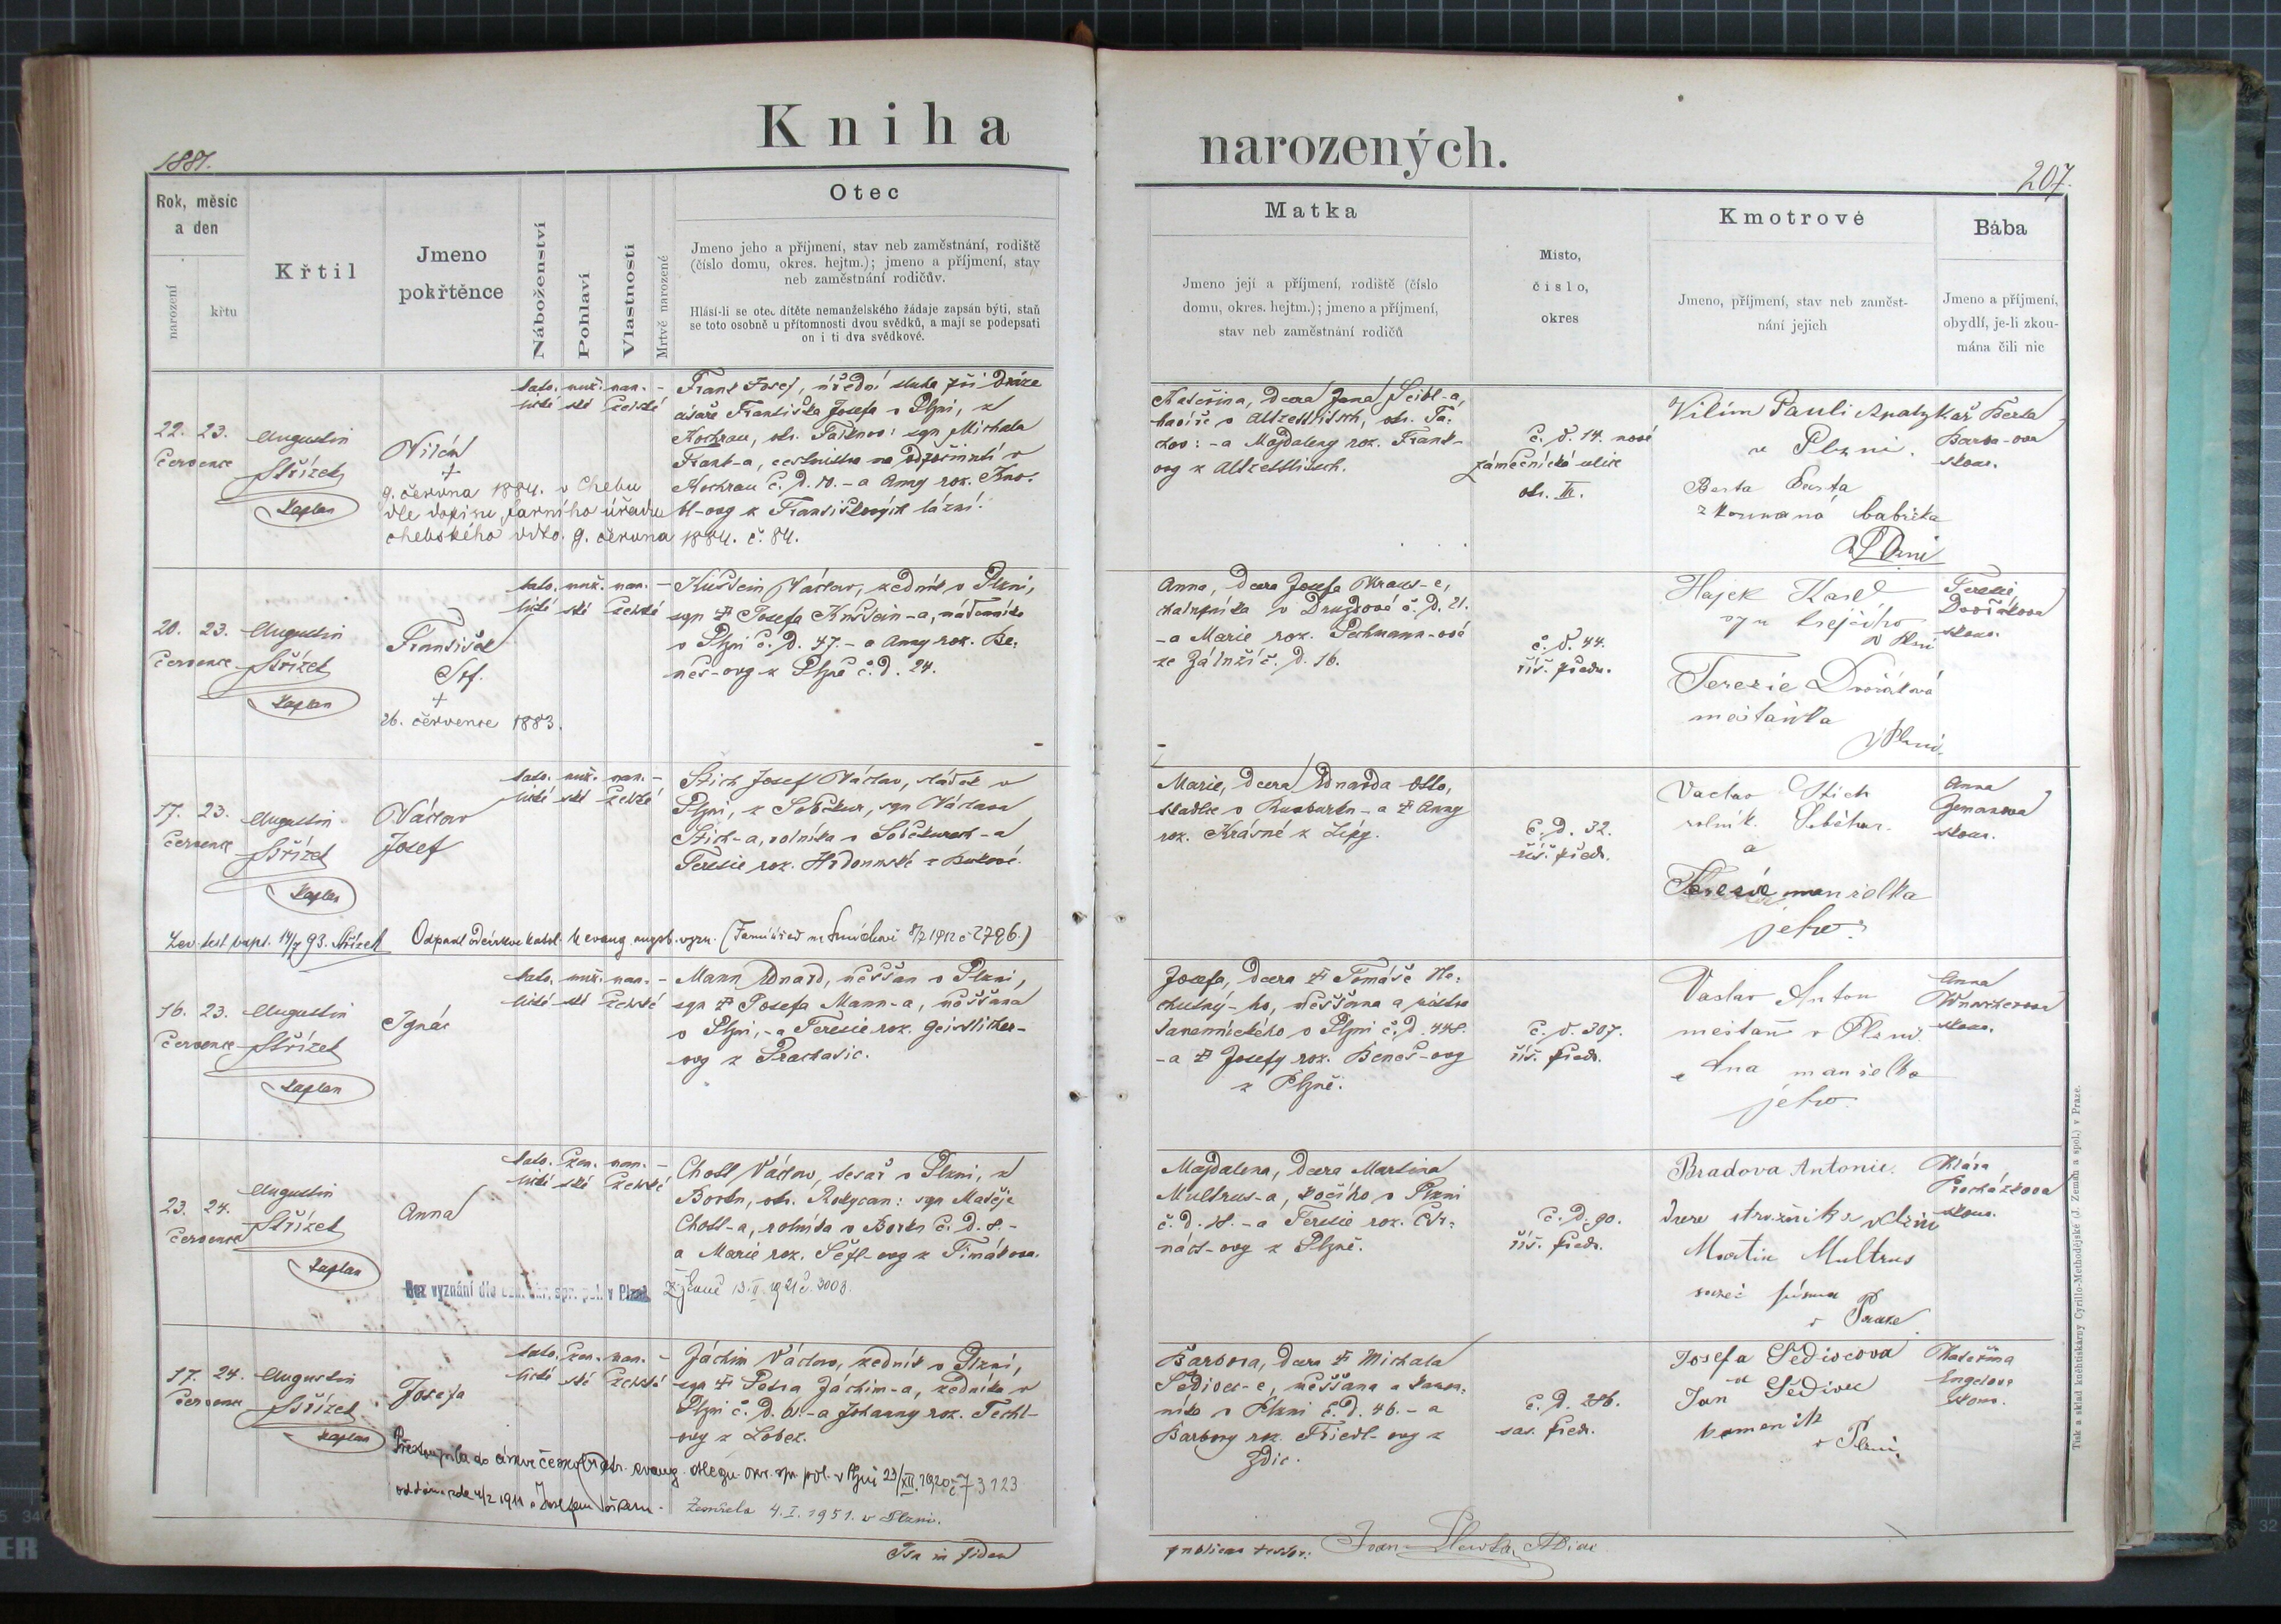 Kniha narozených.
1881.
207.
Rok, měsíc a den
narození
křtu
Křtil
Jmeno pokřtěnce
Náboženství
Pohlaví
Vlastnosti
Mrtvě narozené
Otec
Jmeno jeho a příjmení, stav neb zaměstnání, rodiště
(číslo domu, okres. hejtm.); jmeno a příjmení, stav
neb zaměstnání rodičův.
Hlásí-li se otec dítěte nemanželského žádaje zapsán býti, staň
se toto osobně u přítomnosti dvou svědků, a mají se podepsati
on i ti dva svědkové.
Matka
Jmeno její a příjmení, rodiště (číslo
domu, okres. hejtm.); jmeno a příjmení,
stav neb zaměstnání rodičů
Místo,
číslo,
okres
Kmotrové
Jmeno, příjmení, stav neb zaměst-
nání jejich
Bába
Jmeno a příjmení,
obydlí, je-li zkou-
mána čili nic
22. 23.
Července
Augustin
Střízek
Kaplan
Vilém
+
9. června 1884. v Chebu
dle dopisu farního úřadu
chebského ddto. 9. června 1884. č. 84.
kato. muž. man. -
lické ské želské
Frank Josef, úřední sluha při dráze
císaře Františka Josefa v Plzni, z
Kochrau, okr. Falknov: syn Michala
Frank-a, cestmistra na odpočinutí v
Kochrau č. d. 10. - a Anny roz. Kno-
bl-ovy z Františkových lázní.
Kateřina, dcera Jana Seibl-a,
v Altzedlitsch, okr. Ta-
chov: - a Magdaleny roz. Frank-
ovy z Altzedlitsch.
č. d. 14. nové
zámečnická ulice
okr. III.
Vilím Pauli Apatykař
v Plzni.
Berta Barta
zkoumaná babička
v Plzni
Berta
Barta-ova
zkou.
20. 23.
Července
Augustin
Střízek
Kaplan
František
Sef.
+
26. července 1883.
kato. muž. man. -
lické ské želské
Kuštein Václav, zedník v Plzni,
syn ✝ Josefa Kuštein-a, nádenníka
v Plzni č. d. 47. - a Anny roz. Be-
neš-ovy z Plzně č. d. 24.
Anna, dcera Josefa Kraus-e,
chalupníka v Druzdové č. d. 21.
- a Marie roz. Pechmann-ové
ze Zálužíč. d. 16.
č. d. 44.
říš. předm.
Hajek Karel
syn krejčího
v Plzni
Terezie Dvořáková
meštánka
v Plzni.
Terezie
Dvořákova
zkou.
17. 23.
Července
Augustin
Střízek
Kaplan
Václav
Josef
kato. muž. man. -
lické ské želské
Štich Josef Václav, sládek v
Plzni, z Soběkur, syn Václava
Štich-a, rolníka v Soběkurech - a
Terezie roz. Hodonnské z Bukové.
Marie, dcera Eduarda Otto,
sladka v Rumburku - a ✝ Anny
roz. Krásné z Lípy.
č. d. 32.
říš. předm.
Vaclav Štich
rolník. Soběkur.
a
Terezie manželka
jeho
Anna
Gemanova
zkou.
Lev. test. bapt. 14/7 93. Střízek Odpadl od církve katol. k evang. augsb. vyzn. (Farní úřad na Smíchově 8/2 1912 č 2796.)
16. 23.
Července
Augustin
Střízek
Kaplan
Ignác
kato. muž. man. -
lické ské želské
Mann Eduard, měšťan v Plzni,
syn ✝ Josefa Mann-a, měšťana
v Plzni, - a Terezie roz. Geistlicher-
ovy z Prachatic.
Josefa, dcera ✝ Tomáše Ne-
chutný-ho, měšťana a mistra
kamenického v Plzni č. d. 448.
- a ✝ Josefy roz. Beneš-ovy
z Plzně.
č. d. 307.
říš. předm.
Vaclav Anton
meštan v Plzni.
a Ana manželka
jeho.
Anna
zkou.
23. 24.
Července
Augustin
Střízek
Kaplan
Anna
kato. žen. man. -
lické ské želské
Chott Václav, tesař v Plzni, z
Borku, okr. Rokycan: syn Matěje
Chott-a, rolníka v Borku č. d. 8. -
a Marie roz. Šefl-ovy z Timákova.
Bez vyznání dle ozn. okr. spr. pol. v Plzni
13. II. 1921 č. 3008.
Magdalena, dcera Martina
Multrus-a, kočího v Plzni
č. d. 18. - a Terezie roz. Čer-
nách-ovy z Plzně.
č. d. 90.
říš. předm.
Bradova Antonie.
dcere strážníka v Plzni
Martin Multrus
v Praze
Klára
Procházkova
zkou.
17. 24.
Července
Augustin
Střízek
Kaplan
Josefa
kato. žen. man. -
lické ské želské
Jáchim Václav, zedník v Plzni,
syn ✝ Petra Jáchim-a, zedníka v
Plzni č. d. 61. - a Johanny roz. Techl-
ovy z Lobez.
Přestoupila do církve českobratr. evang. ohlegu. okr. spr. pol. v Plzni 23/XII. 1920 č. 73123
oddána zde 4/2 1911 s Josefem
Zemřela 4. I. 1951. v Plzni.
Barbora, dcera ✝ Michala
Šedivec-e, měšťana a kamen-
níka v Plzni č. d. 46. - a
Barbory roz. Friedl-ovy z
Zdic.
č. d. 286.
sas. předm.
Josefa Šedivcova
a
Jan Šedivec
kamenik
v Plzni.
Kateřina
Engelova
zkou.
Ita in fidem
publicam testor: Ivan
Tisk a sklad knihtiskárny Cyrillo-Methodějské (J. Zeman a spol.) v Praze.